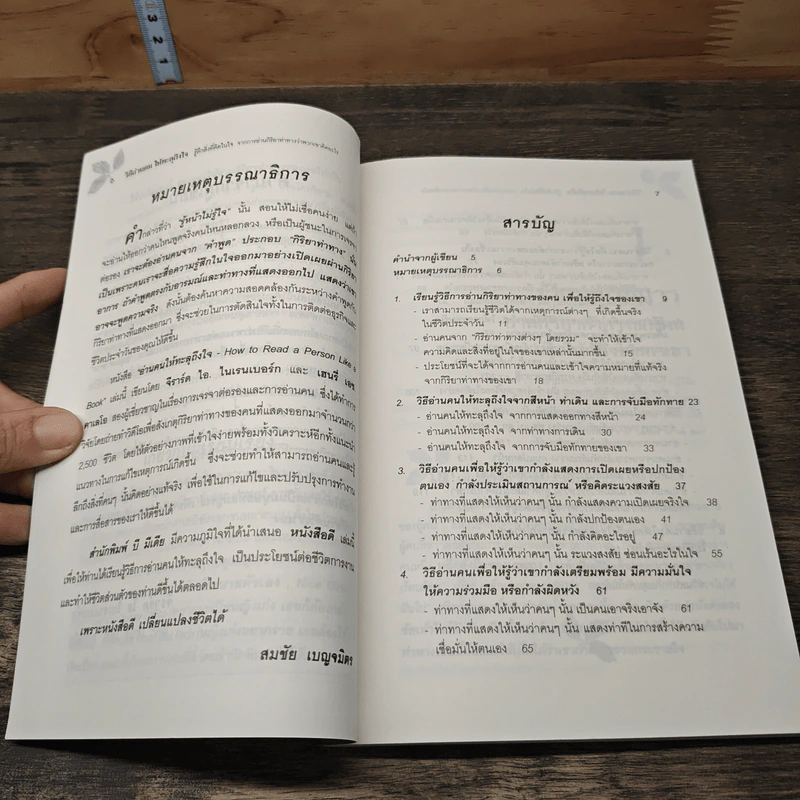 3
2
1
6 ให้อ่านคน ให้ทะลุถึงใจ รู้ลึกสิ่งที่คิดในใจ จากการอ่านกิริยาท่าทางว่าพวกเขาคิดอะไร
หมายเหตุบรรณาธิการ
คำกล่าวที่ว่า "รู้หน้าไม่รู้ใจ" นั้น สอนให้ไม่เชื่อคนง่าย แต่
จะอ่านให้ออกว่าคนไหนพูดจริงคนไหนหลอกลวง หรือเป็นผู้ชนะในการเจรจา
ต่อรอง เราจะต้องอ่านคนจาก "คำพูด" ประกอบ "กิริยาท่าทาง" นั้น
เป็นเพราะคนเราจะสื่อความรู้สึกในใจออกมาอย่างเปิดเผยผ่านกิริยา
อาการ ถ้าคำพูดตรงกับอารมณ์และท่าทางที่แสดงออกไป แสดงว่าเขา
อาจจะพูดความจริง ดังนั้นต้องค้นหาความสอดคล้องกันระหว่างคำพูดกับ
กิริยาท่าทางที่แสดงออกมา ซึ่งจะช่วยในการตัดสินใจทั้งในการติดต่อธุรกิจและ
ชีวิตประจำวันของคุณให้ดีขึ้น
หนังสือ อ่านคนให้ทะลุถึงใจ - How to Read a Person Like a
Book" เล่มนี้ เขียนโดย จีราร์ด ไอ. ไนเรนเบอร์ก และ เฮนรี่ เอช.
คาเลโร สองผู้เชี่ยวชาญในเรื่องการเจรจาต่อรองและการอ่านคน ซึ่งได้ทำการ
วิจัยโดยถ่ายทำวิดีโอเพื่อสังเกตุกิริยาท่าทางของคนที่แสดงออกมาจำนวนกว่า
2,500 ชีวิต โดยให้ตัวอย่างภาพที่เข้าใจง่ายพร้อมทั้งวิเคราะห์อีกทั้งแนะนำ
แนวทางในการแก้ไขเหตุการณ์เกิดขึ้น ซึ่งจะช่วยทำให้สามารถอ่านคนและรู้
ลึกถึงสิ่งที่คนๆ นั้นคิดอย่างแท้จริง เพื่อใช้ในการแก้ไขและปรับปรุงการทำงาน
และการสื่อสารของเราให้ดีขึ้นได้
สำนักพิมพ์ บี มีเดีย มีความภูมิใจที่ได้นำเสนอ หนังสือดี เล่มนี้
เพื่อให้ท่านได้เรียนรู้วิธีการอ่านคนให้ทะลุถึงใจ เป็นประโยชน์ต่อชีวิตการงาน
และทำให้ชีวิตส่วนตัวของท่านดีขึ้นได้ตลอดไป
เพราะหนังสือดี เปลี่ยนแปลงชีวิตได้
สมชัย เบญจมิตร
7
สารบัญ
คำนำจากผู้เขียน 5
หมายเหตุบรรณาธิการ 6
1. เรียนรู้วิธีการอ่านกิริยาท่าทางของคน เพื่อให้รู้ถึงใจของเขา 9
- เราสามารถเรียนรู้ชีวิตได้จากเหตุการณ์ต่างๆ ที่เกิดขึ้นจริง
ในชีวิตประจำวัน 11
- อ่านคนจาก "กิริยาท่าทางต่างๆ โดยรวม" จะทำให้เข้าใจ
ความคิดและสิ่งที่อยู่ในใจของเขาเหล่านั้นมากขึ้น 15
- ประโยชน์ที่จะได้จากการอ่านคนและเข้าใจความหมายที่แท้จริง
จากกิริยาท่าทางของเขา 18
2. วิธีอ่านคนให้ทะลุถึงใจจากสีหน้า ท่าเดิน และการจับมือทักทาย 23
- อ่านคนให้ทะลุถึงใจ จากการแสดงออกทางสีหน้า 24
- อ่านคนให้ทะลุถึงใจ จากท่าทางการเดิน 30
- อ่านคนให้ทะลุถึงใจ จากการจับมือทักทายของเขา 33
3. วิธีอ่านคนเพื่อให้รู้ว่าเขากำลังแสดงการเปิดเผยหรือปกป้อง
ตนเอง กำลังประเมินสถานการณ์ หรือคิดระแวงสงสัย 37
- ท่าทางที่แสดงให้เห็นว่าคนๆ นั้น กำลังแสดงความเปิดเผยจริงใจ 38
- ท่าทางที่แสดงให้เห็นว่าคนๆ นั้น กำลังปกป้องตนเอง 41
- ท่าทางที่แสดงให้เห็นว่าคนๆ นั้น กำลังคิดอะไรอยู่ 47
- ท่าทางที่แสดงให้เห็นว่าคนๆ นั้น ระแวงสงสัย ซ่อนเร้นอะไรในใจ 55
4. วิธีอ่านคนเพื่อให้รู้ว่าเขากำลังเตรียมพร้อม มีความมั่นใจ
ให้ความร่วมมือ หรือกำลังผิดหวัง 61
- ท่าทางที่แสดงให้เห็นว่าคนๆ นั้น เป็นคนเอาจริงเอาจัง 61
- ท่าทางที่แสดงให้เห็นว่าคนๆ นั้น แสดงท่าทีในการสร้างความ
เชื่อมั่นให้ตนเอง 65